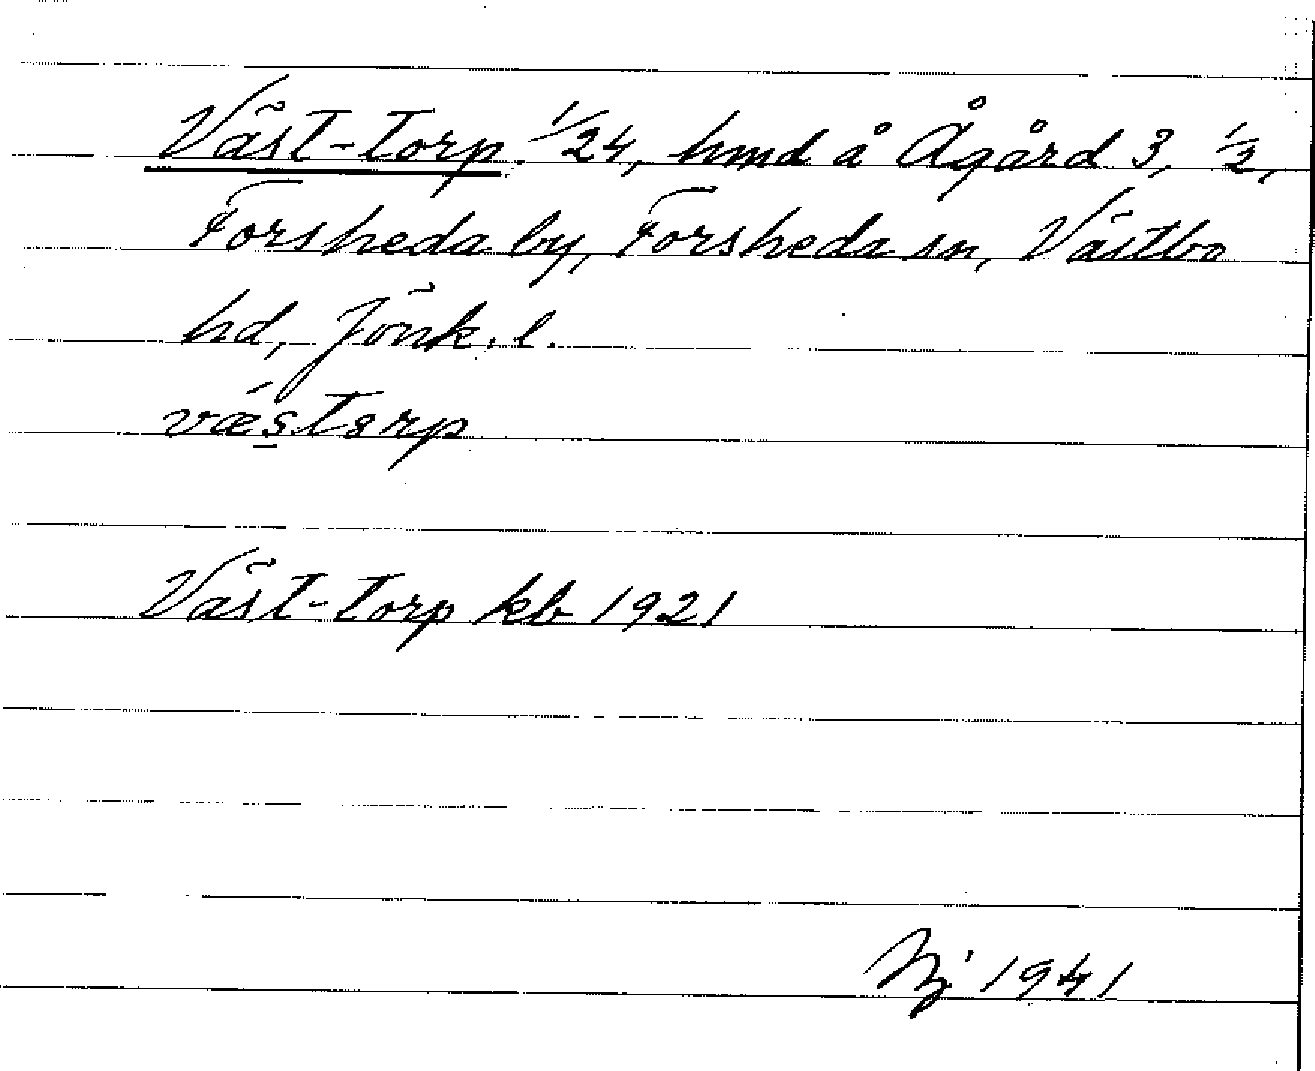 Väst-Torp. 1/24, hmd å Ågård 3, 1/2,
Forsheda by, Forsheda sn, Västbo
hd, Jönk. l.
Väst-Torp kb 1921
1941